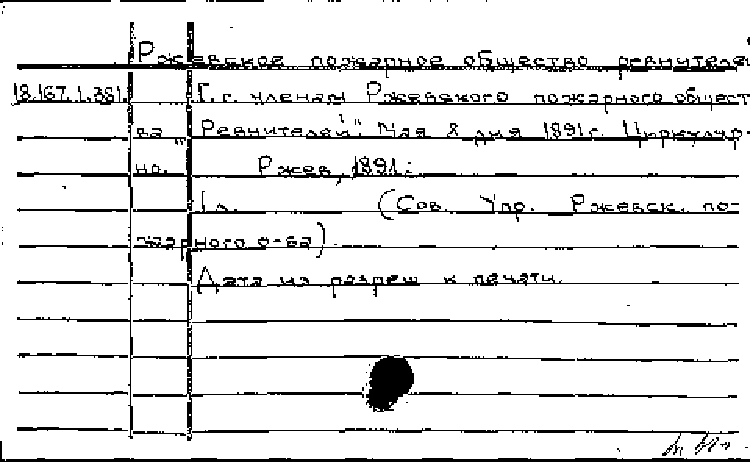 Ржевское пожарное общество ревнителей
18.167.1.381. Г.г. членам Ржевского пожарного общест-
ва „Ревнителей". Мая 8 дня 1891 г. Циркуляр-
но. Ржев, 1891.
1 л. (Сов. Упр. Ржевск. по-
жарного о-ва).
Дата из разреш к печати.